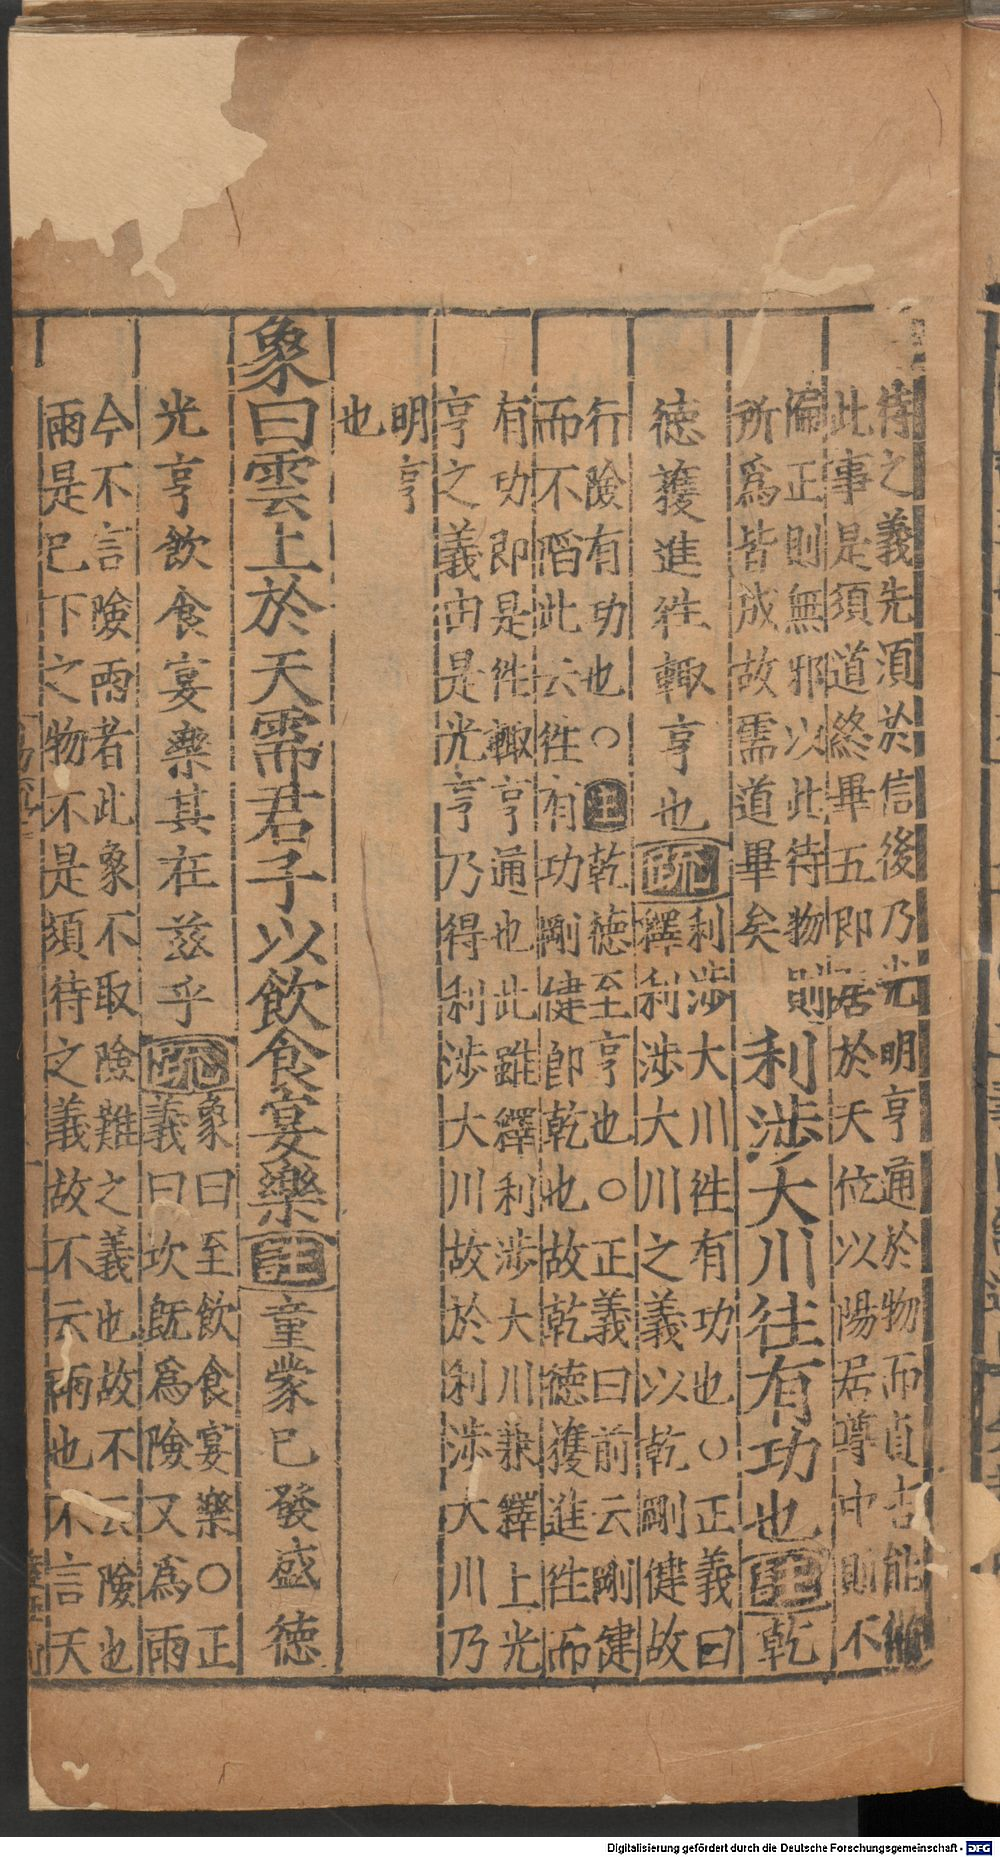 待之義先須於信後乃光明亨通於物而貞吉能徧
此事是須道終畢五即居於天位以陽居尊中則不
偏正則無邪以此待物則
所爲皆成故需道畢矣
利涉大川往有功也註乾
德獲進往輒亨也疏
利涉大川往有功也○正義曰
釋利涉大川之義以乾剛健故
行險有功也○注乾德至亨也○正義曰前云剛健
而不陷此云往有功剛健即乾也故乾德獲進往而
有功即是往輒亨通也此雖釋利涉大川兼釋上光
亨之義由是光亨乃得利涉大川故於利涉大川乃
明亨
也
象曰雲上於天需君子以飲食宴樂註童蒙已發盛德
光亨飲食宴樂其在茲乎疏
象曰至飲食宴樂○正
義曰坎旣爲險又爲雨
今不言險雨者此象不取險難之義也故不云險也
雨是已下之物不是須待之義故不云雨也不言天
Digitalisierung gefördert durch die Deutsche Forschungsgemeinschaft - DFG